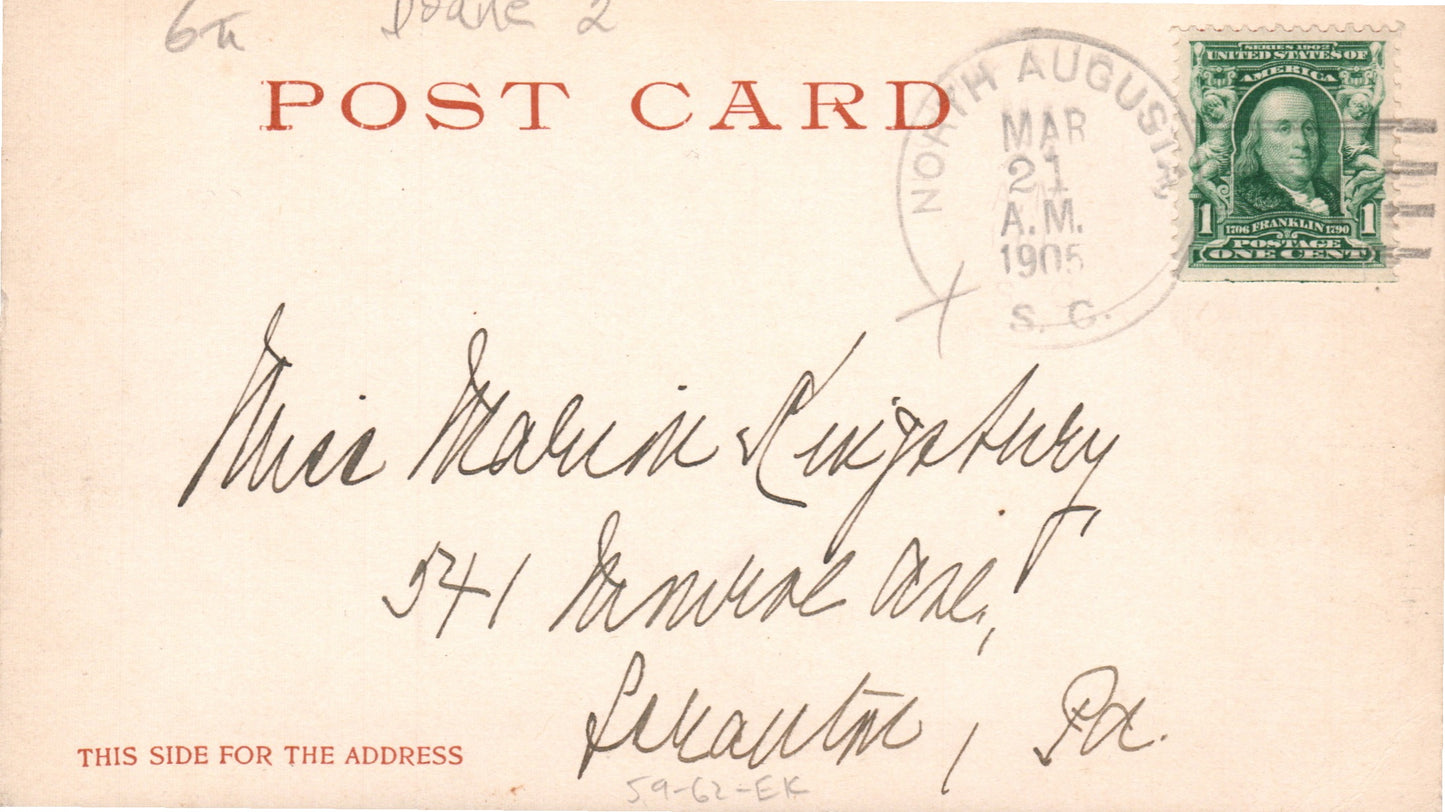 Doane 2
POST CARD
NORTH AUGUSTA,
MAR
21
A.M.
1905
S. C.
SERIES 1902
UNITED STATES OF
AMERICA
1
1706 FRANKLIN 1790
1
POSTAGE
ONE CENT
Miss Marion Kingsbury,
541 Monroe Ave.,
Scranton, Pa.
THIS SIDE FOR THE ADDRESS
59-62-EK